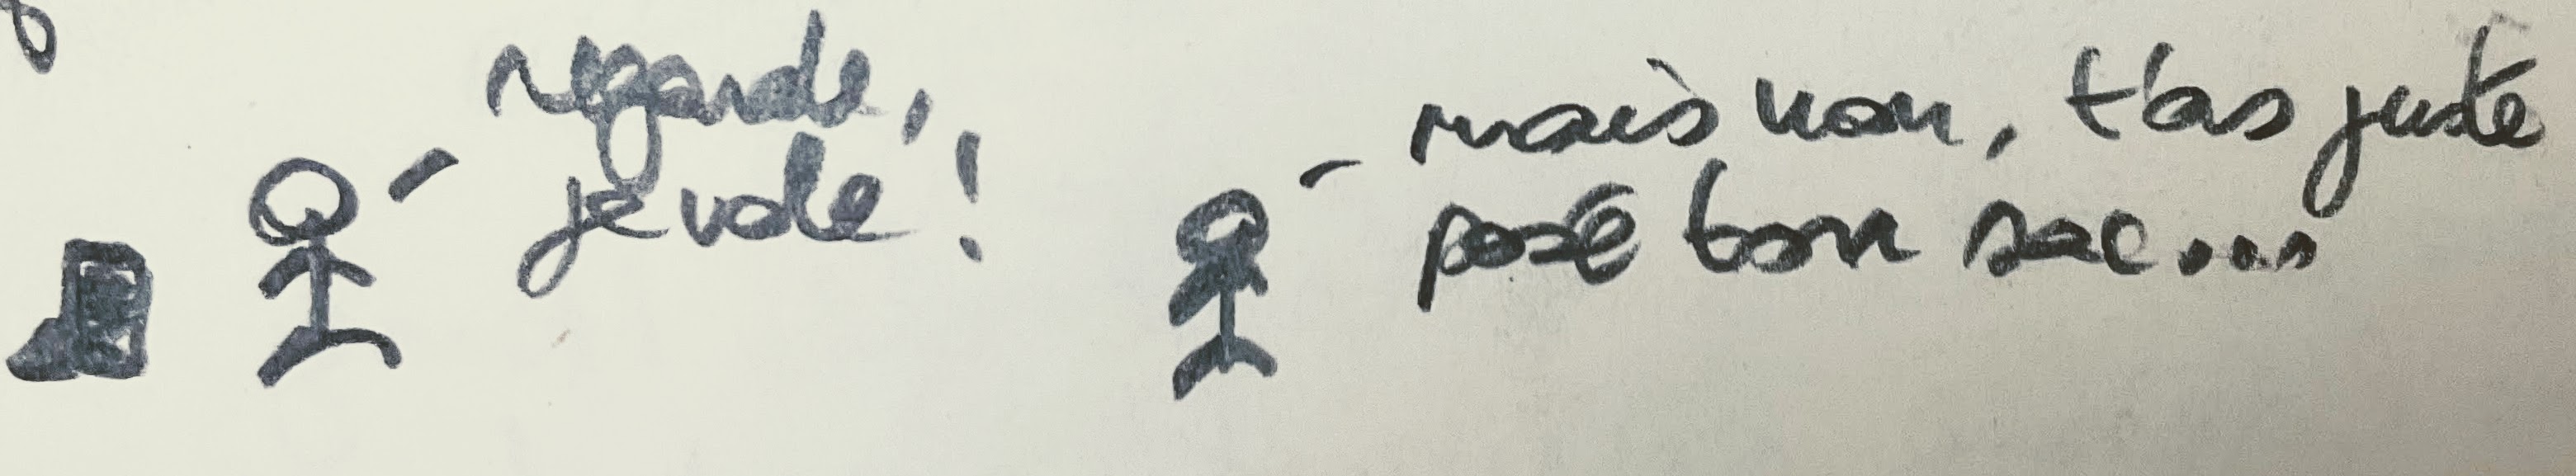 regarde,
je vole !
mais non, t'as juste
posé ton sac...